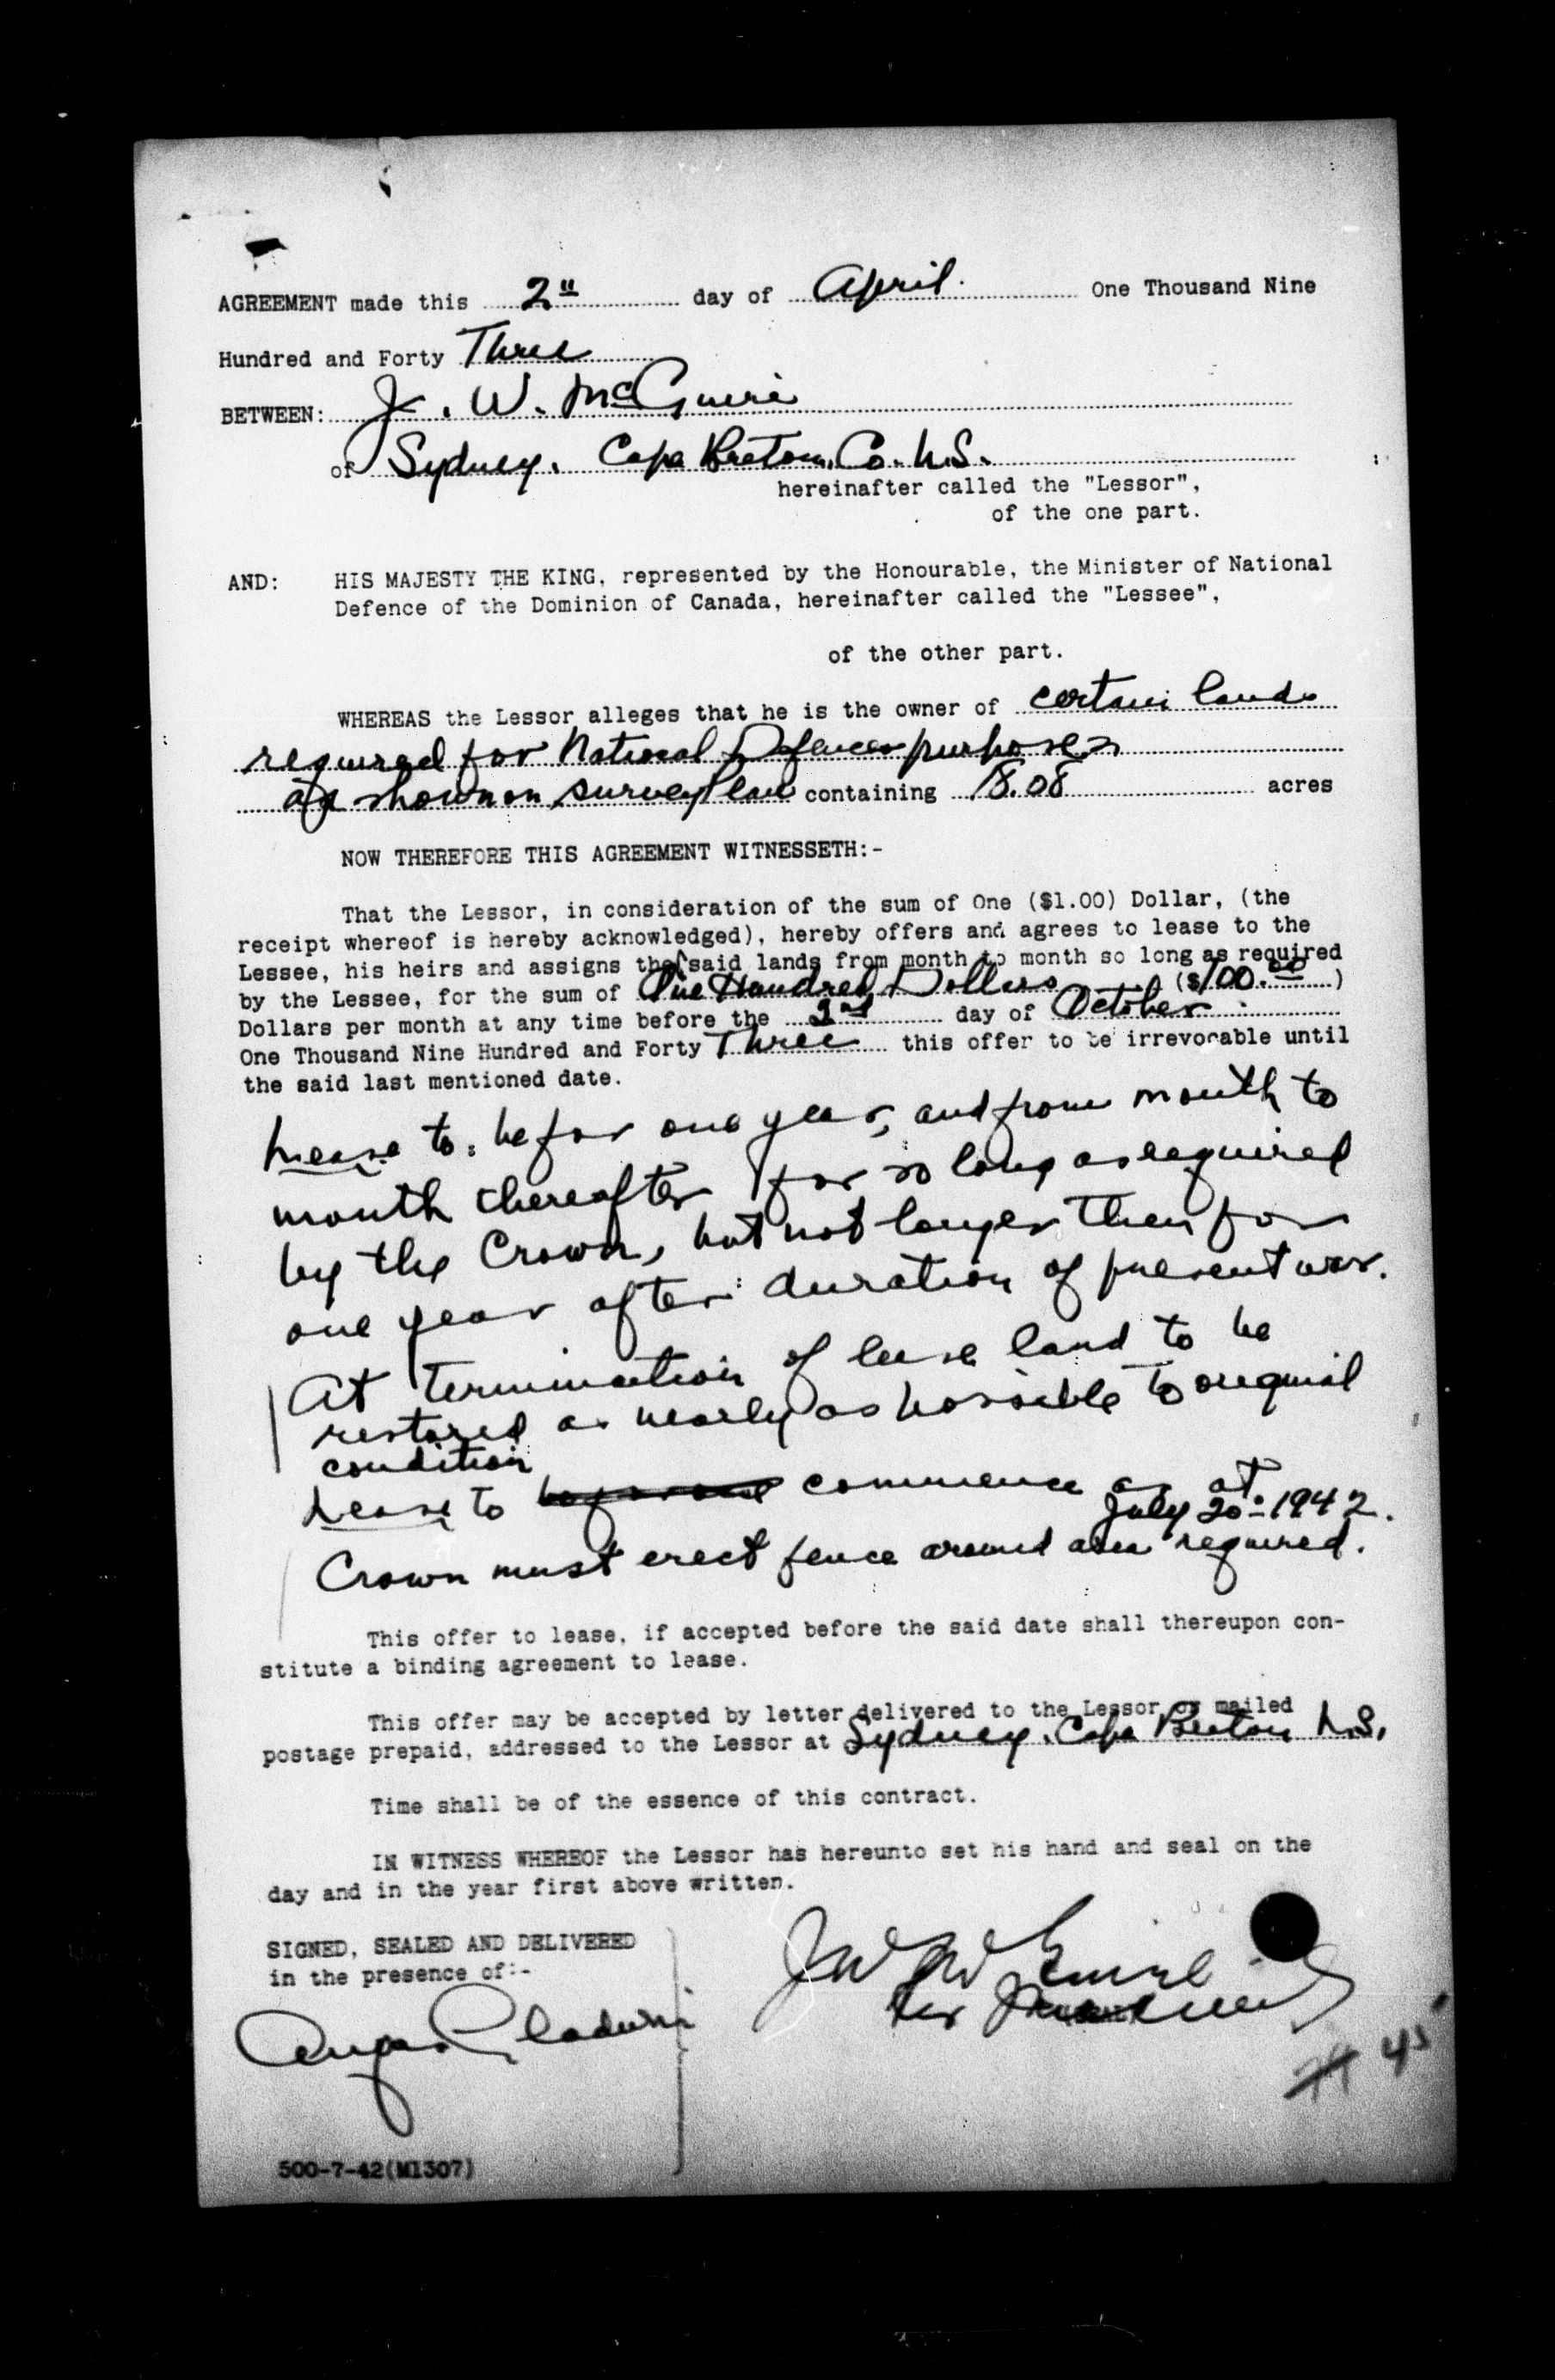 AGREEMENT made this 2nd day of April. One Thousand Nine
Hundred and Forty Three
BETWEEN: J. W. McGuire
of Sydney. Cape Breton, Co. N.S.
hereinafter called the "Lessor",
of the one part.
AND: HIS MAJESTY THE KING, represented by the Honourable, the Minister of National
Defence of the Dominion of Canada, hereinafter called the "Lessee",
of the other part.
WHEREAS the Lessor alleges that he is the owner of certain lands
required for National Defence purposes
as shown on survey plan containing 18.08 acres
NOW THEREFORE THIS AGREEMENT WITNESSETH:-
That the Lessor, in consideration of the sum of One ($1.00) Dollar, (the
receipt whereof is hereby acknowledged), hereby offers and agrees to lease to the
Lessee, his heirs and assigns the said lands from month to month so long as required
by the Lessee, for the sum of One Hundred Dollars ($100.00)
Dollars per month at any time before the 2nd day of October
One Thousand Nine Hundred and Forty Three this offer to be irrevocable until
the said last mentioned date.
Lease to: be for one year, and from month to
month thereafter for so long as required
by the Crown, but not longer than for
one year after duration of present war.
At termination of lease land to be
restored as nearly as possible to original
condition
Lease to commence as at
July 20th 1942.
Crown must erect fence around area required.
This offer to lease, if accepted before the said date shall thereupon con-
stitute a binding agreement to lease.
This offer may be accepted by letter delivered to the Lessor or mailed
postage prepaid, addressed to the Lessor at Sydney, Cape Breton N.S.
Time shall be of the essence of this contract.
IN WITNESS WHEREOF the Lessor has hereunto set his hand and seal on the
day and in the year first above written.
SIGNED, SEALED AND DELIVERED
in the presence of:-
J W McGuire
Per
Angus
45
500-7-42(M1307)